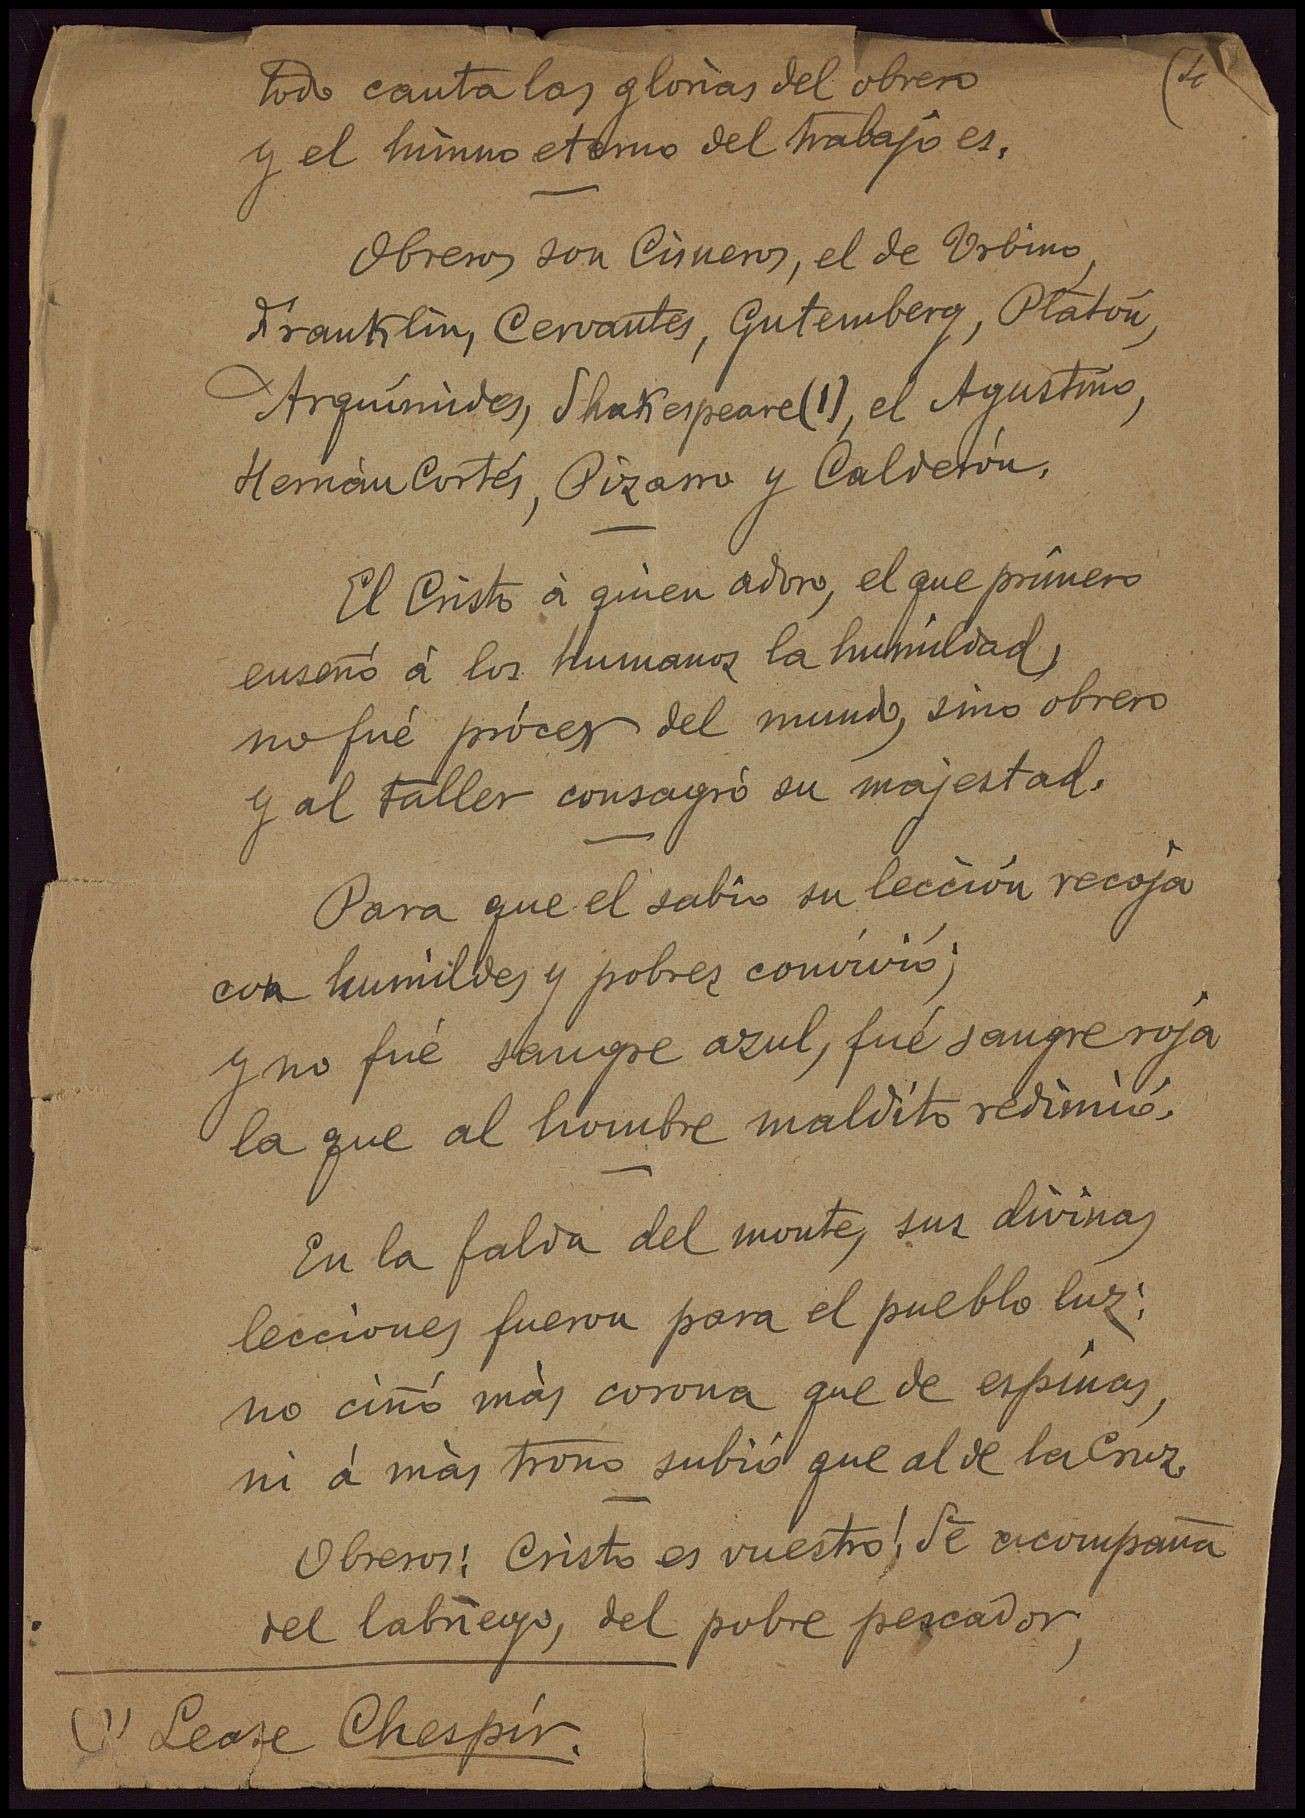 todo canta las glorias del obrero
y el himno eterno del trabajo es.
Obreros son Cisneros, el de Urbino,
Franklin, Cervantes, Gutemberg, Platón,
Arquímides, Shakespeare (1), el Agustino,
Hernán Cortés, Pizarro y Calderón.
El Cristo á quien adoro, el que primero
enseñó á los humanos la humildad,
no fué prócer del mundo, sino obrero
y al taller consagró su majestad.
Para que el sabio su lección recoja
con humildes y pobres convivió;
y no fué sangre azul, fué sangre roja
la que al hombre maldito redimió.
En la falda del monte, sus divinas
lecciones fueron para el pueblo luz;
no ciñó más corona que de espinas,
ni á más trono subió que al de la Cruz.
Obreros: Cristo es vuestro! Se acompaña
del labriego, del pobre pescador,
(1) Lease Chespir.